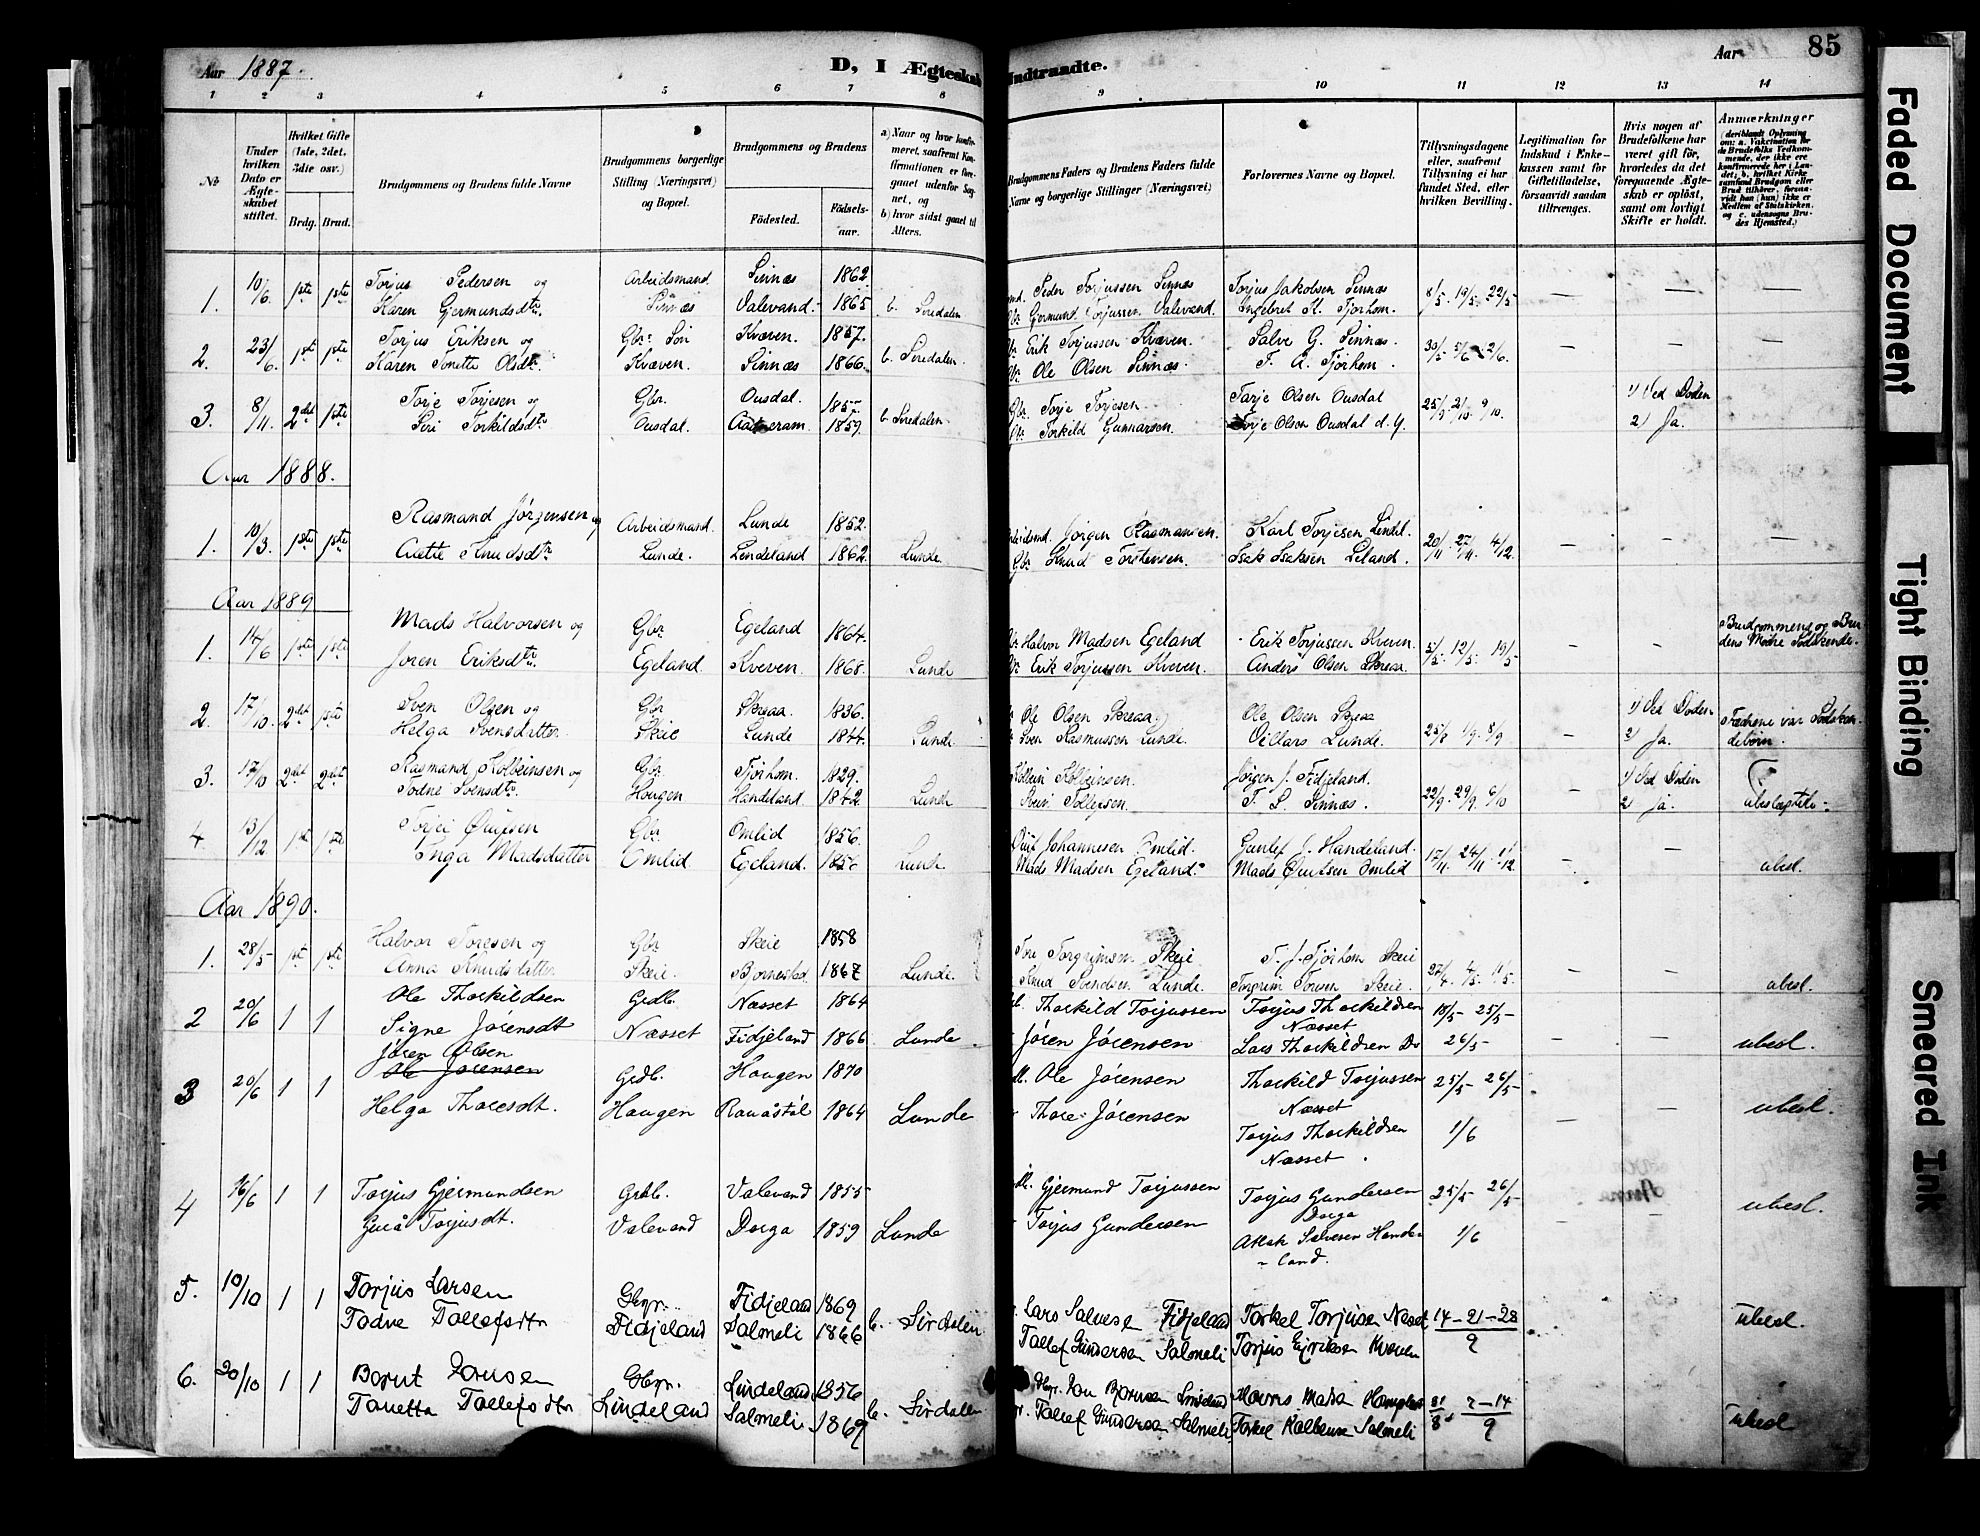 Aar 1887.
D, I Ægteskab Indtraadte.
Aar
85
1 2 3 4 5 6 7 8 9 10 11 12 13 14
№
Under hvilken Dato er Ægteskabet stiftet.
Hvilket Gifte (1ste, 2det, 3die osv.)
Brdg. Brud.
Brudgommens og Brudens fulde Navne
Brudgommens borgerlige Stilling (Næringsvei) og Bopæl.
Brudgommens og Brudens
Fødested.
Fødsels-aar.
a) Naar og hvor konfirmeret, saafremt Konfirmationen er foregaaet udenfor Sognet, og
b) hvor sidst gaaet til Alters.
Brudgommens Faders og Brudens Faders fulde Navne og borgerlige Stillinger (Næringsvei)
Forlovernes Navne og Bopæl.
Tillysningsdagene eller, saafremt Tillysning ei har fundet Sted, efter hvilken Bevilling.
Legitimation for Indskud i Enkekassen samt for Giftetilladelse, forsaavidt saadan tiltrænges.
Hvis nogen af Brudefolkene har været gift før, hvorledes da det foregaaende Ægteskab er opløst, samt om lovligt Skifte er holdt.
Anmærkninger
1. 10/6. 1ste 1ste Torjus Pedersen og Arbeidsmand Sinnæs 1862 Peder Torjussen Sinnæs Torjus Jakobsen Sinnæs 8/5. 19/5. 22/5 — — —
Karen Gjermundsdtr. Sinnæs Valevand. 1865 b. Siredalen Gbr. Gjermund Torjussen Valevand. Ingebret St. Tjorhom.
2. 23/6. 1ste 1ste Torjus Eriksen og Gbr. Søn Kvæven. 1857. Erik Torjussen Kvæven. Salve G. Sinnæs. 30/5 5/6 12/6. — — —
Karen Tonette Olsdtr. Kvæven. Sinnæs 1866. b. Siredalen Ole Olsen Sinnæs. T. A. Tjorhom.
3. 8/11. 2det 1ste Torje Torjesen og Gbr. Ousdal. 1857 Gbr. Torje Torjesen. Tarje Olsen Ousdal 25/9. 2/10 9/10. 1) Ved Døden
Siri Torkildsdtr. Ousdal. 1859. b Siredalen Gbr. Torkild Gunnarsen. Torje Olsen Ousdal d. y. 2) Ja.
Aar 1888.
1. 10/3. 1ste 1ste Rasmand Jörgensen og Arbeidsmand. Lunde 1852. Jörgen Rasmansen. Karl Torjesen Lindel. 20/11. 27/11. 4/12. — — —
Aette Knudsdtr. Lunde. Lindeland 1862. Lunde. Gbr. Knud Torstensen. Isak Isaksen Liland.
Aar 1889
1. 14/6 1ste 1ste Mads Halvorsen og Gbr. Egeland 1864. Halvor Madsen Egeland Erik Torjussen Kveven. 5/5. 12/5. 19/5 — — Brudgommens og Brudens Mødre Södskende.
Joren Eriksdtr. Egeland. Kveven. 1868. Lunde Erik Torjussen Kveven. Anders Olsen Skreaa
2. 17/10. 2det 1ste Sven Olsen og Gbr Skreaa. 1836. Ole Olsen Skreaa. Ole Olsen Skreaa 25/8 1/9. 8/9 — 1) Ved Døden Fædrene var Södskendebörn.
Helga Svensdatter Skeie Lunde 1844. Lunde Sven Rasmussen Lunde. Villars Lunde. 2) Ja.
3. 17/10 2det 2det Rasmand Kolbeinsen og Gbr. Tjörhom. 1829. Kolbein Kolbeinsen. Jörgen J. Fidjeland. 22/9. 29/9. 6/10 1) Ved Døden ubeslægtede.
Todne Svensdtr. Hougen Handeland. 1842. Lunde Sven Tollefsen. T. S. Sinnæs. 2) Ja.
4 13/12 1ste 1ste Gbr. Omlid 1856. Johannesen Omlid. Gunlef J. Handeland. 17/11. 24/11. 1/12 — — ubesl.
Inga Madsdatter Omlid. Egeland. Lunde Mads Madsen Egeland. Mads Omlid
Aar 1890.
1. 28/5 1ste 1ste Halvor Toresen og Gbr Skeie 1858 Tore Torgrimsen Skeie T. J. Tjörhom Skeie 27/4. 4/5. 11/5. — — ubesl.
Anna Knudsdatter Skeie. 1867 Lunde. Knud Svendsen Lunde. Torgrim Toresen Skeie.
2 20/6 1 1 Ole Thorkildsen Grdb. Næsset 1864 Thorkild Torjussen Torjus Thorkildsen Næsset 18/5 25/5
Signe Jörensdt Næsset Fidjeland 1866 Lunde. Jören Jörensen Lars Thorkildsen Do 26/5 — — ubesl.
3 20/6 1 1 Jören Olsen Ole Jörensen Grdb. Hougen 1870 Ole Jörensen Thorkild Torjussen Næsset 25/5 26/5
Helga Thoresdt. Hougen Rauåstöl 1864 Lunde Thore Jörensen Torjus Thorkildsen Næsset. 1/6 — — ubesl.
4 16/6 1 1 Torjus Gjermundsen Grdb. Valevand 1855 Gjermund Torjussen Torjus Gundersen Dorga 25/5 26/5
Gurå Torjusdt. Valevand Dorga 1859 Lunde Torjus Gundersen Aslak Salvesen Handeland. 1/6 — — ubesl.
5. 10/10 1 1 Torjus Larsen Gbgr. Fidjeland 1869 Lars Salvese Fidjeland Torkel Torjusen Neset 14 – 21 – 28
Todne Tollefsdtr Fidjeland Salmeli 1866 b. Sirdalen Tallef Gundersen Salmeli Torjus Kvæven 9 ubesl.
6. 20/10 1 1 Gbgr. Lindeland 1856 Lindeland 31/8 7 – 14
Tonetta Tollefsdtr Lindeland Salmeli 1869 b. Sirdalen Tallef Gundersen Salmeli. Torkel Salmeli 9 ubesl
Faded Document
Tight Binding
Smeared Ink